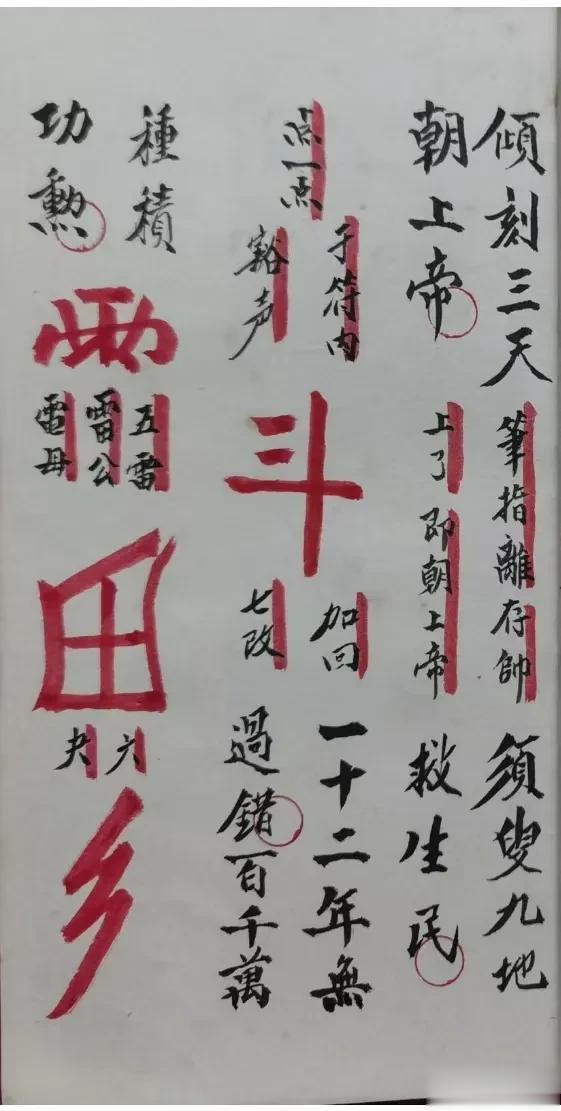 傾刻三天
筆指離存帥
須臾九地
朝上帝
上了即朝上帝
救生民
点一点
于符内
豁声
斗
加回
七改
一十二年無
過錯百千萬
種積
功勲
雨
五雷
雷公
電母
田
六
夫
乡